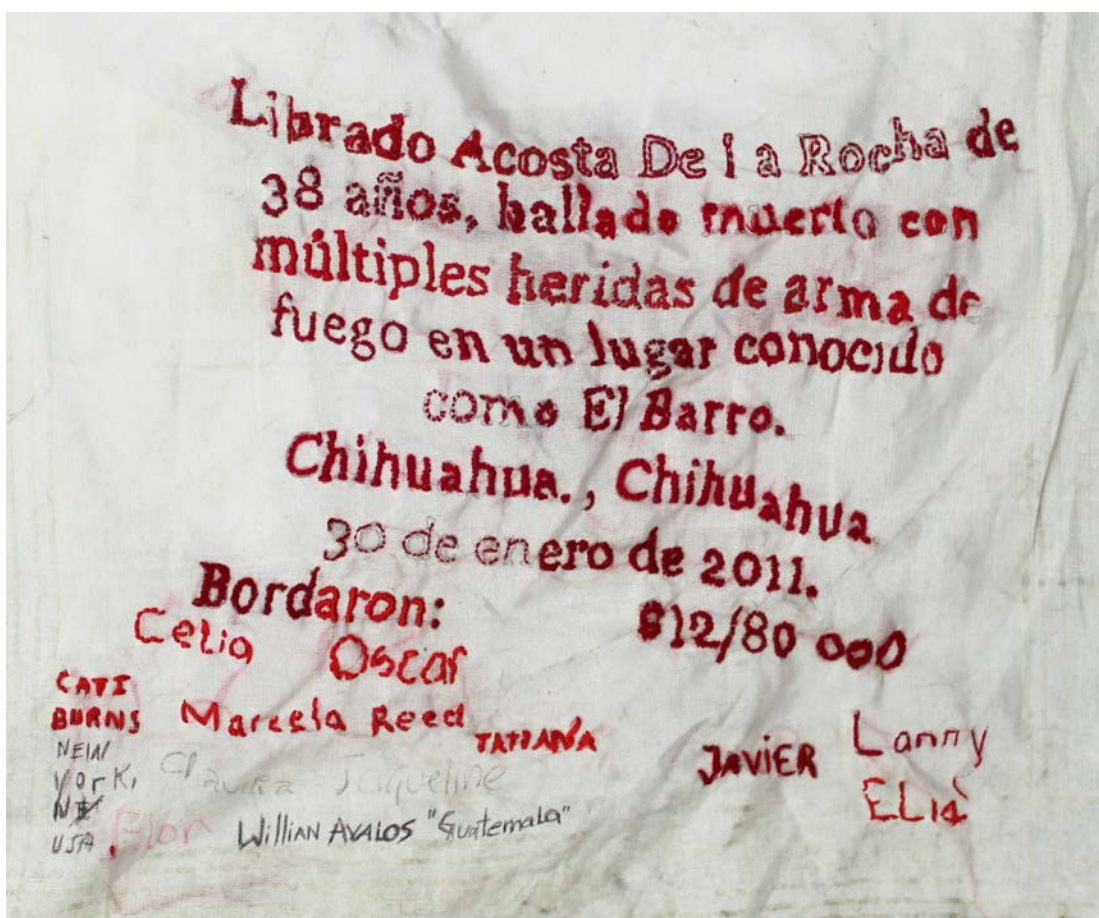 Librado Acosta De la Rocha de
38 años, hallado muerto con
múltiples heridas de arma de
fuego en un lugar conocido
como El Barro.
Chihuahua., Chihuahua
30 de enero de 2011.
Bordaron:
812/80 000
Celia Oscar
CATI
BURNS
NEW
YORK,
USA
Marcela Reed
TATIANA
JAVIER
Lanny
ELiá
Jaqueline
Flor
Willian AVALOS "Guatemala"